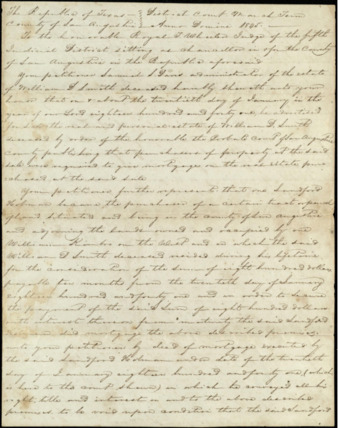 The Republic of Texas District Court March Term
County of San Augustine Anno Domini 184
To the honorable Royal T. Wheeler Judge of the fifth
Judicial District sitting as chancellor in & for the County
of San Augustine in the Republic aforesaid
Your petitioner Samuel administrator of the estate
of William D. Smith deceased humbly sheweth unto your
honor that on or about the twentieth day of January in the
year of our Lord eighteen hundred and forty one he
the real and personal estate of William D. Smith
deceased by order of the honorable the Probate Court San Augustine
county that purchasers of property at the said
sale required to give mortgage on the real estate pur
chased at the said sale
Your petitioner further represents that one Sandford
Holman became the purchaser of a certain tract or parcel
of land situated and being in the county of San Augustine
and adjoining the lands owned and occupied by one
William on the West and on which the said
William D. Smith deceased resided during his lifetime
for the consideration of the sum of eight hundred dollars
payable months from the twentieth day of January
eighteen hundred and forty one and in order to secure
the payment of the said sum of eight hundred dollars
with interest thereon the said Sandford
Holman did mortgage the above described premises
unto your petitioner by deed of mortgage executed by
the said Sandford Holman under date of the twentieth
day of January eighteen hundred and forty one (which
is here to the court shown) in which he conveyed all his
right title and interest in and to the above described
premises to be void upon condition that the said Sandford